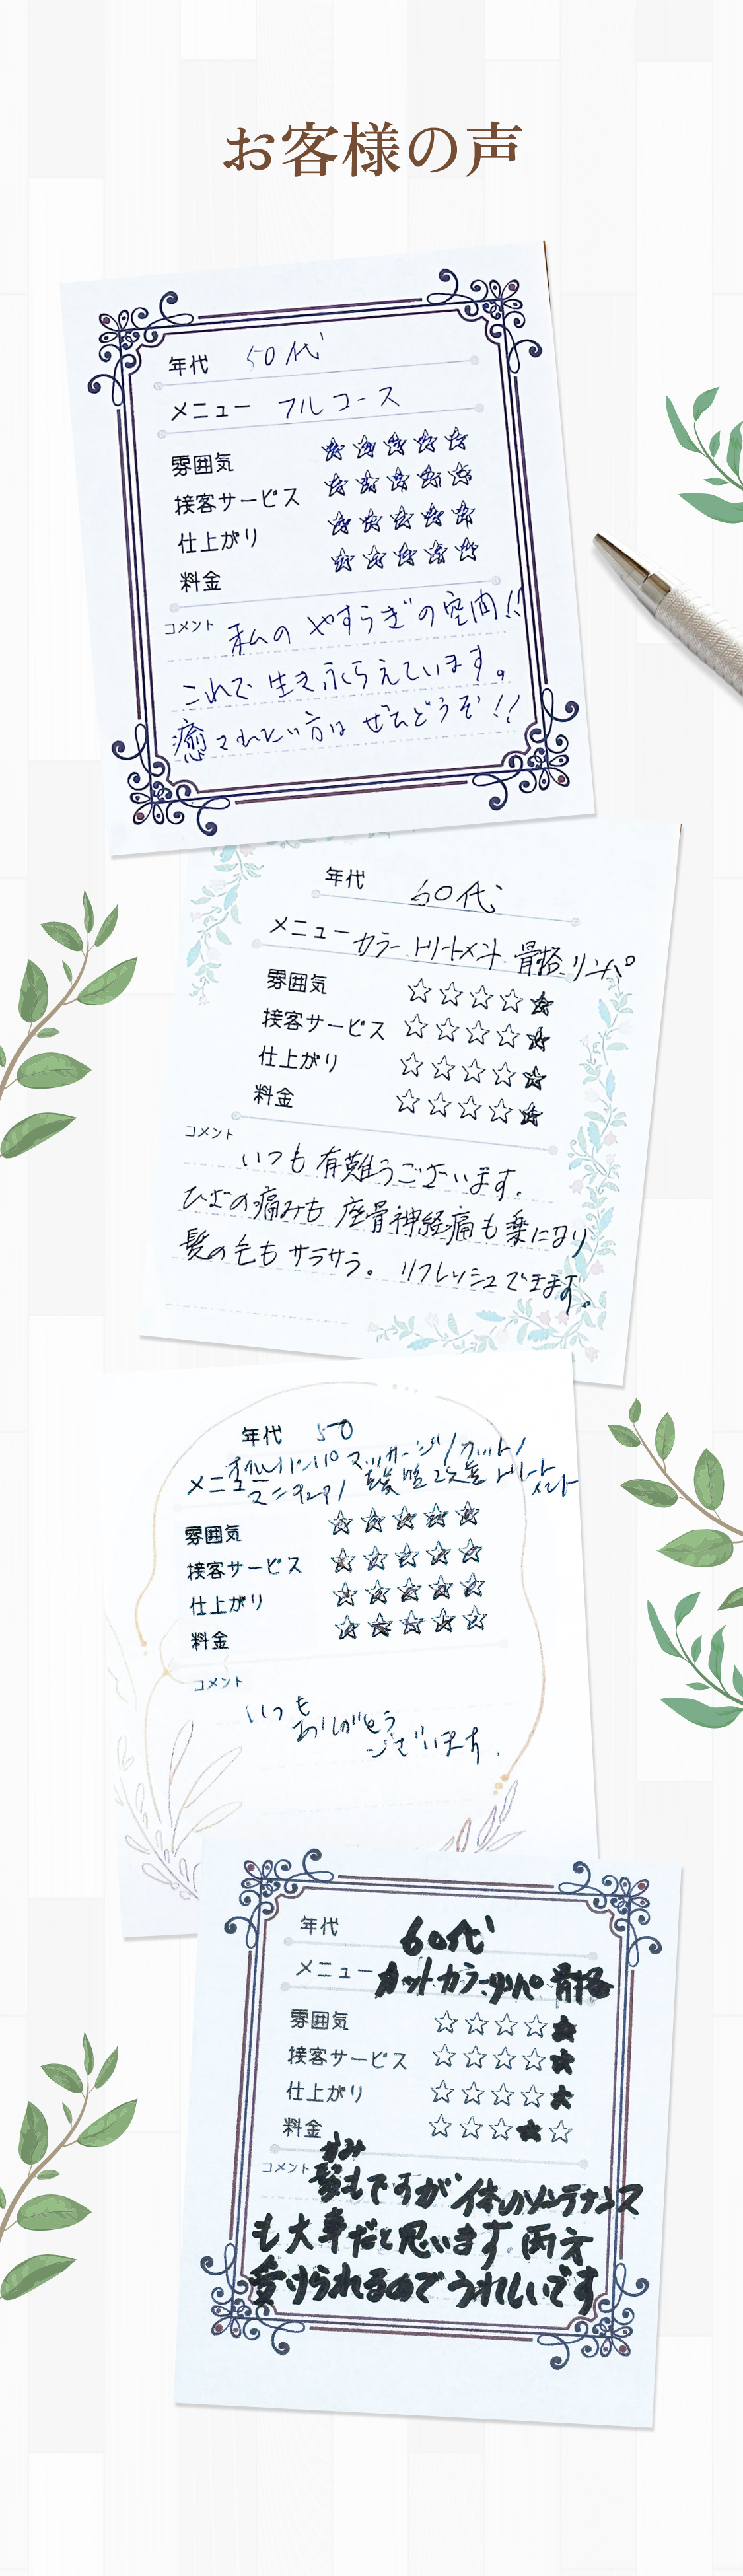 お客様の声
年代 50代
メニュー フルコース
雰囲気 ★★★★★
接客サービス ★★★★★
仕上がり ★★★★★
料金 ★★★★★
コメント 私の やすらぎの空間!!
これで 生きふくらえています。
癒されたい方は ぜひどうぞ!!
年代 60代
メニュー カラー、トリートメント、骨格、リンパ
雰囲気 ☆☆☆☆★
接客サービス ☆☆☆☆★
仕上がり ☆☆☆☆★
料金 ☆☆☆☆★
コメント いつも 有難うございます。
ひざの痛みも 座骨神経痛も 楽になり
髪の毛も サラサラ。 リフレッシュできます。
年代 50
マッサージ/カット/
メニュー マニキュア/ 髪質改善 トリート
メント
雰囲気 ★★★★★
接客サービス ★★★★★
仕上がり ★★★★★
料金 ★★★★★
コメント いつも
ありがとう
ございます.
年代 60代
メニュー カット.カラー.リンパ 骨格
雰囲気 ☆☆☆☆★
接客サービス ☆☆☆☆★
仕上がり ☆☆☆☆★
料金 ☆☆☆★☆
かみ
コメント 髪もですが 体のメンテナンス
も大事だと思います 両方
受けられるので うれしいです